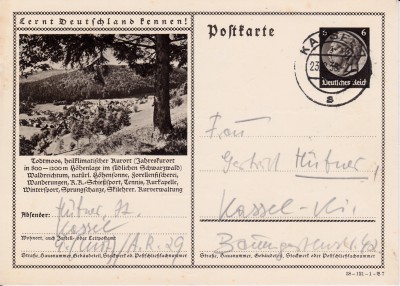 Lernt Deutschland kennen!
Postkarte
6 6
Deutsches Reich
KASSEL
23.
s
Todtmoos, heilklimatischer Kurort (Jahreskurort
in 800–1200 m Höhenlage im südlichen Schwarzwald)
Waldreichtum, natürl. Höhensonne, Forellenfischerei,
Wanderungen, K.K.-Schießsport, Tennis, Kurkapelle,
Wintersport, Sprungschanze, Skilehrer. Kurverwaltung
Absender: Hübner, St.
Kassel
Wohnort, auch Zustell- oder Leitpostamt
A.R. 29
Straße, Hausnummer, Gebäudeteil, Stockwerk oder Postschließfachnummer
Frau
Hübner,
Kassel-Ki.
Straße, Hausnummer, Gebäudeteil, Stockwerk oder Postschließfachnummer